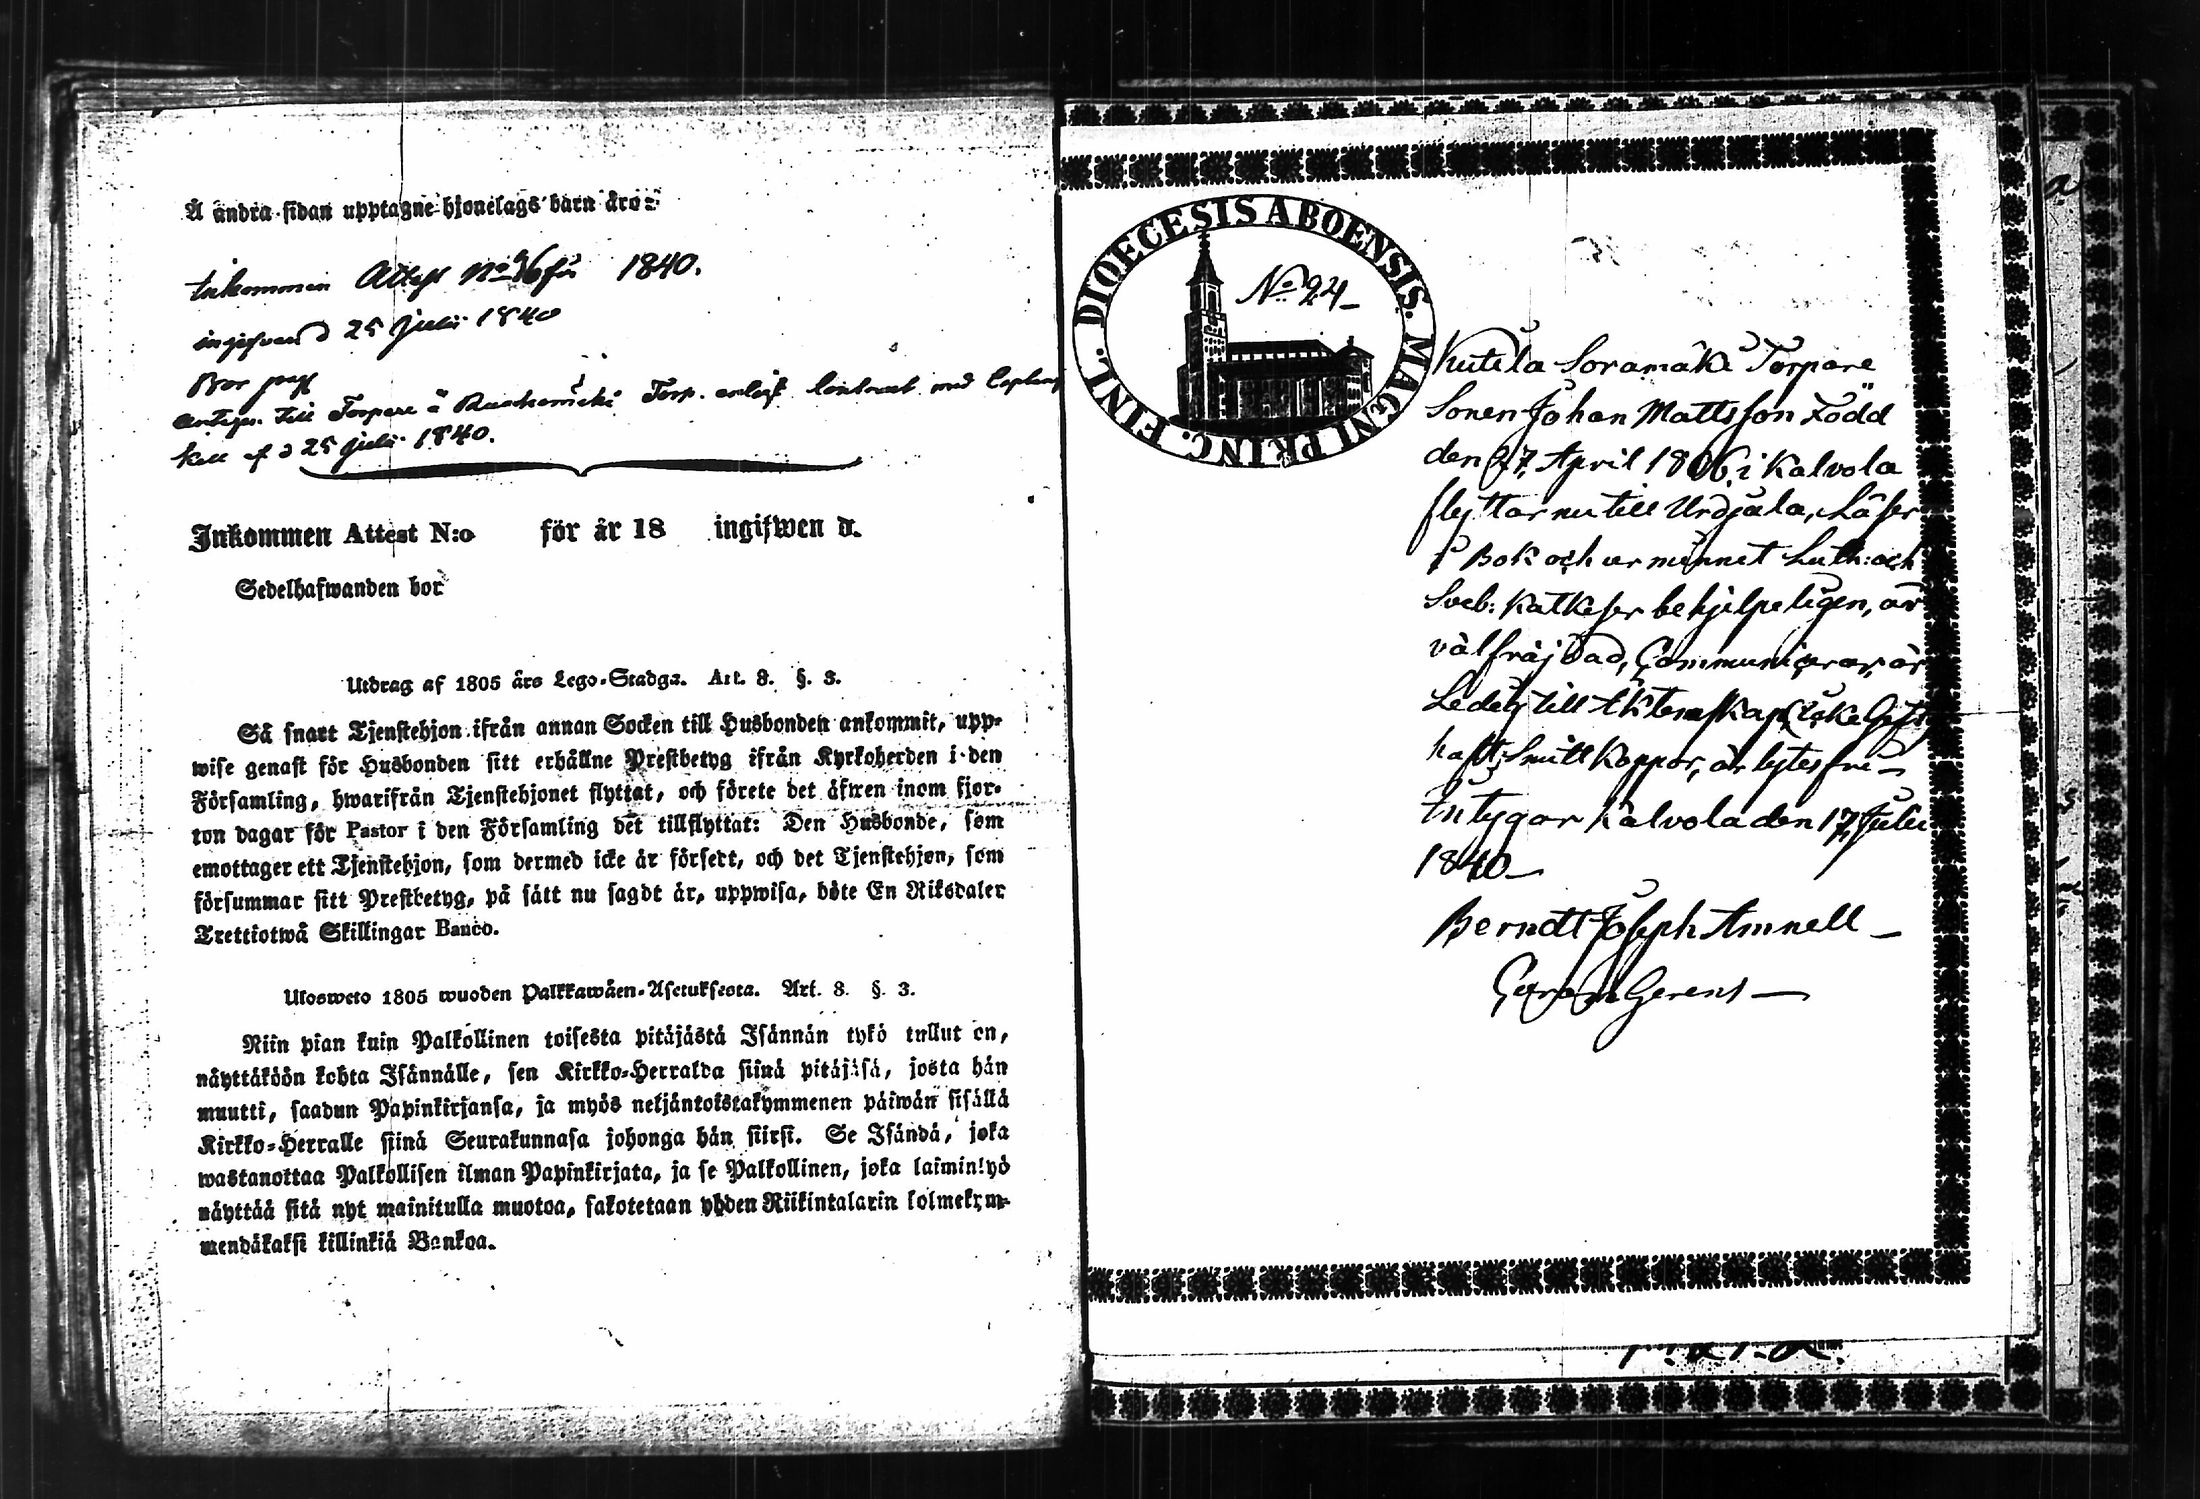 Å andra sidan upptagne hjonelags barn äro:
Inkommen Attest No 96 för 1840.
ingifven d 25 Julii 1840
Bor
antagen till Torpare å Torp. enligt Contract med
af d 25 Julii 1840.
Inkommen Attest N:o för år 18 ingifwen d.
Sedelhafwanden bor
Utdrag af 1805 års Lego-Stadga. Art. 8. §. 3.
Så snart Tjenstehjon ifrån annan Socken till Husbonden ankommit, upp-
wise genast för Husbonden sitt erhållne Prestbetyg ifrån Kyrkoherden i den
Församling, hwarifrån Tjenstehjonet flyttat, och förete det äfwen inom fjor-
ton dagar för Pastor i den Församling det tillflyttat: Den Husbonde, som
emottager ett Tjenstehjon, som dermed icke är försedt, och det Tjenstehjon, som
försummar sitt Prestbetyg, på sätt nu sagdt är, uppwisa, böte En Riksdaler
Trettiotwå Skillingar Banco.
Ulosweto 1805 wuoden Palkkawäen-Asetuksesta. Art. 8. §. 3.
Niin pian kuin Palkollinen toisesta pitäjästä Isännän tykö tullut on,
näyttäköön kohta Isännälle, sen Kirkko-Herralda siinä pitäjäsä, josta hän
muutti, saadun Papinkirjansa, ja myös neljäntoistakymmenen päiwän sisällä
Kirkko-Herralle siinä Seurakunnasa johonga hän siirsi. Se Isändä, joka
wastanottaa Palkollisen ilman Papinkirjata, ja se Palkollinen, joka laiminlyö
näyttää sitä nyt mainitulla muotoa, sakotetaan yhden Riikintalarin kolmekym-
mendäkaksi killinkiä Bankoa.
DIOECESIS ABOENSIS. MAGNI PRINC. FINL.
No 24
Kutila Soramäki Torpare
Sonen Johan Mattsson Född
den 27 April 1806 i Kalvola
flyttar nu till Urdjala, Läser
i Bok och ur minnet Luth: och
Sveb: Katkeser behjelpeligen, är
välfräjdad, Communicerar, är
Ledig till Äktenskap,
haft Smittkoppor, är lytesfri
Intygar Kalvola den 17 Julii
1840
Berndt Joseph Amnell
Gerens